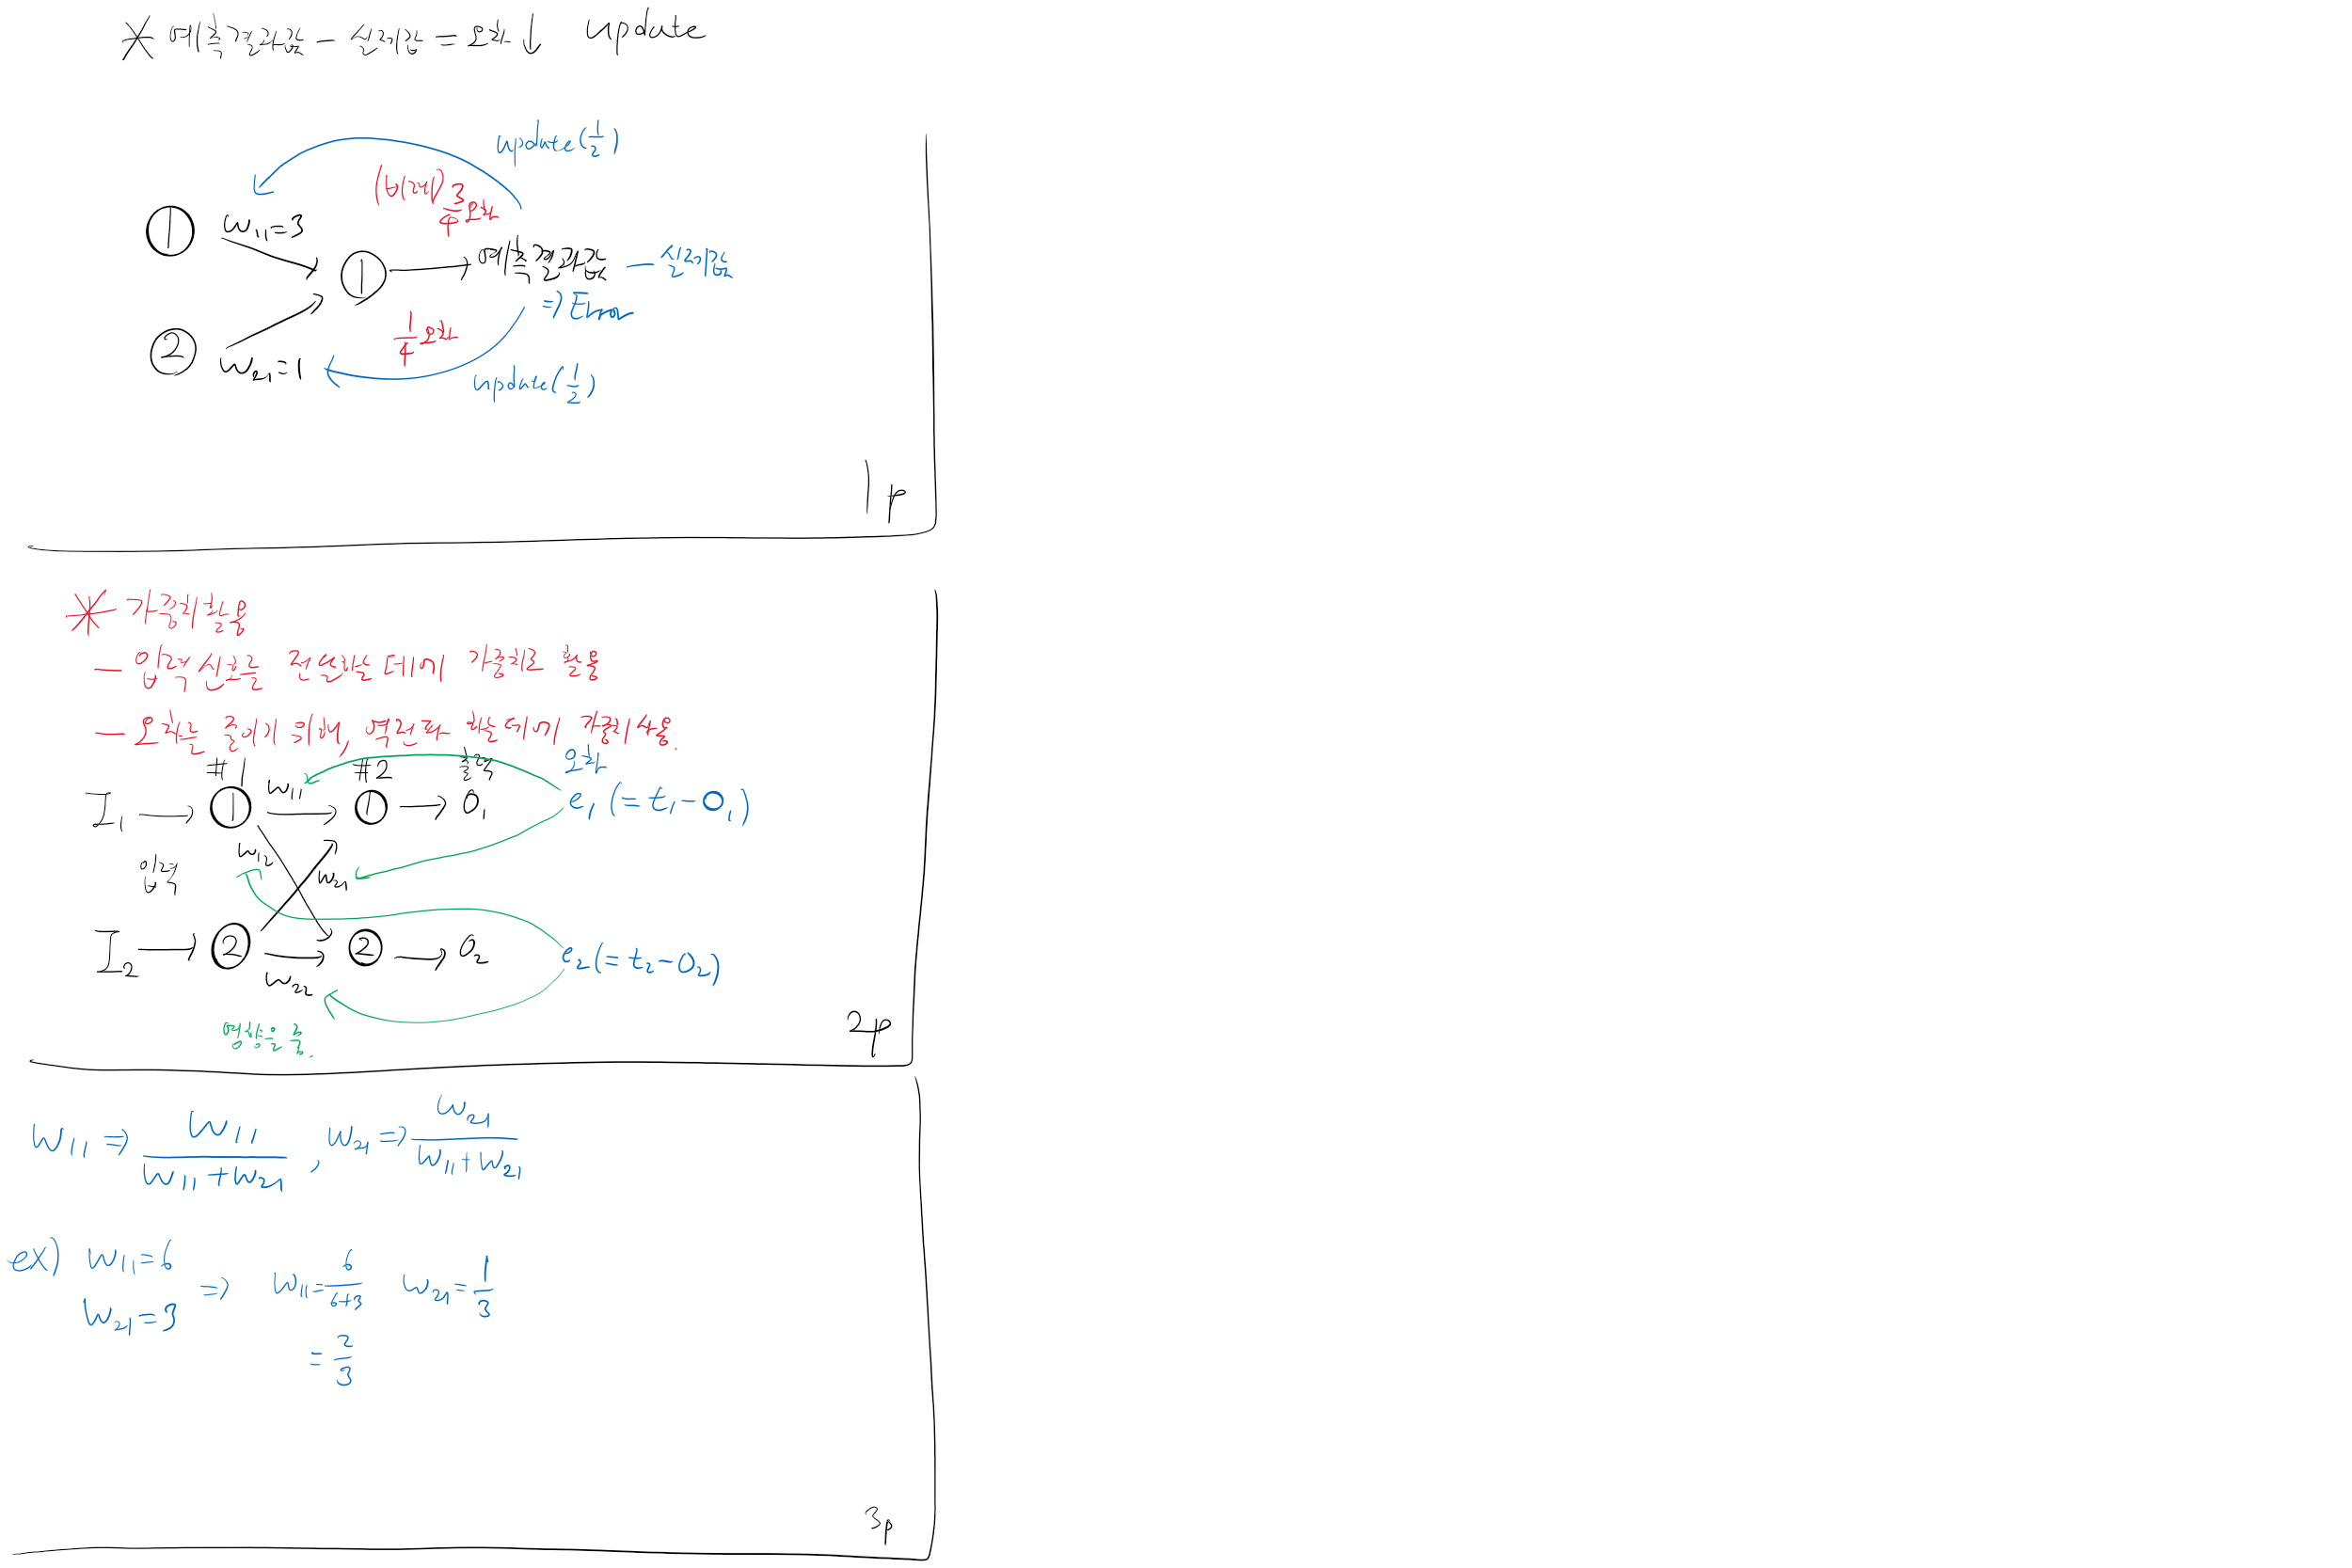 * 예측결과값 - 실제값 = 오차↓ update
update(1/2)
(비례) 3/4 오차
① w11=3
① → 예측결과값 - 실제값
⇒ Error
1/4 오차
② w21=1
update(1/2)
1p
* 가중치활용
- 입력신호를 전달하는 데에 가중치로 활용
- 오차는 줄이기 위해, 역전파 하는 데에 가중치 사용.
#1 #2 출력 오차
I1 → ① w11 → ① → O1 e1 (= t1 - O1)
입력 w12 w21
I2 → ② → ② → O2 e2 (= t2 - O2)
w22
영향을 줌.
2p
w11 ⇒ w11/(w11+w21) , w21 ⇒ w21/(w11+w21)
ex) w11=6 ⇒ w11=6/(6+3) w21=1/3
w21=3
= 2/3
3p